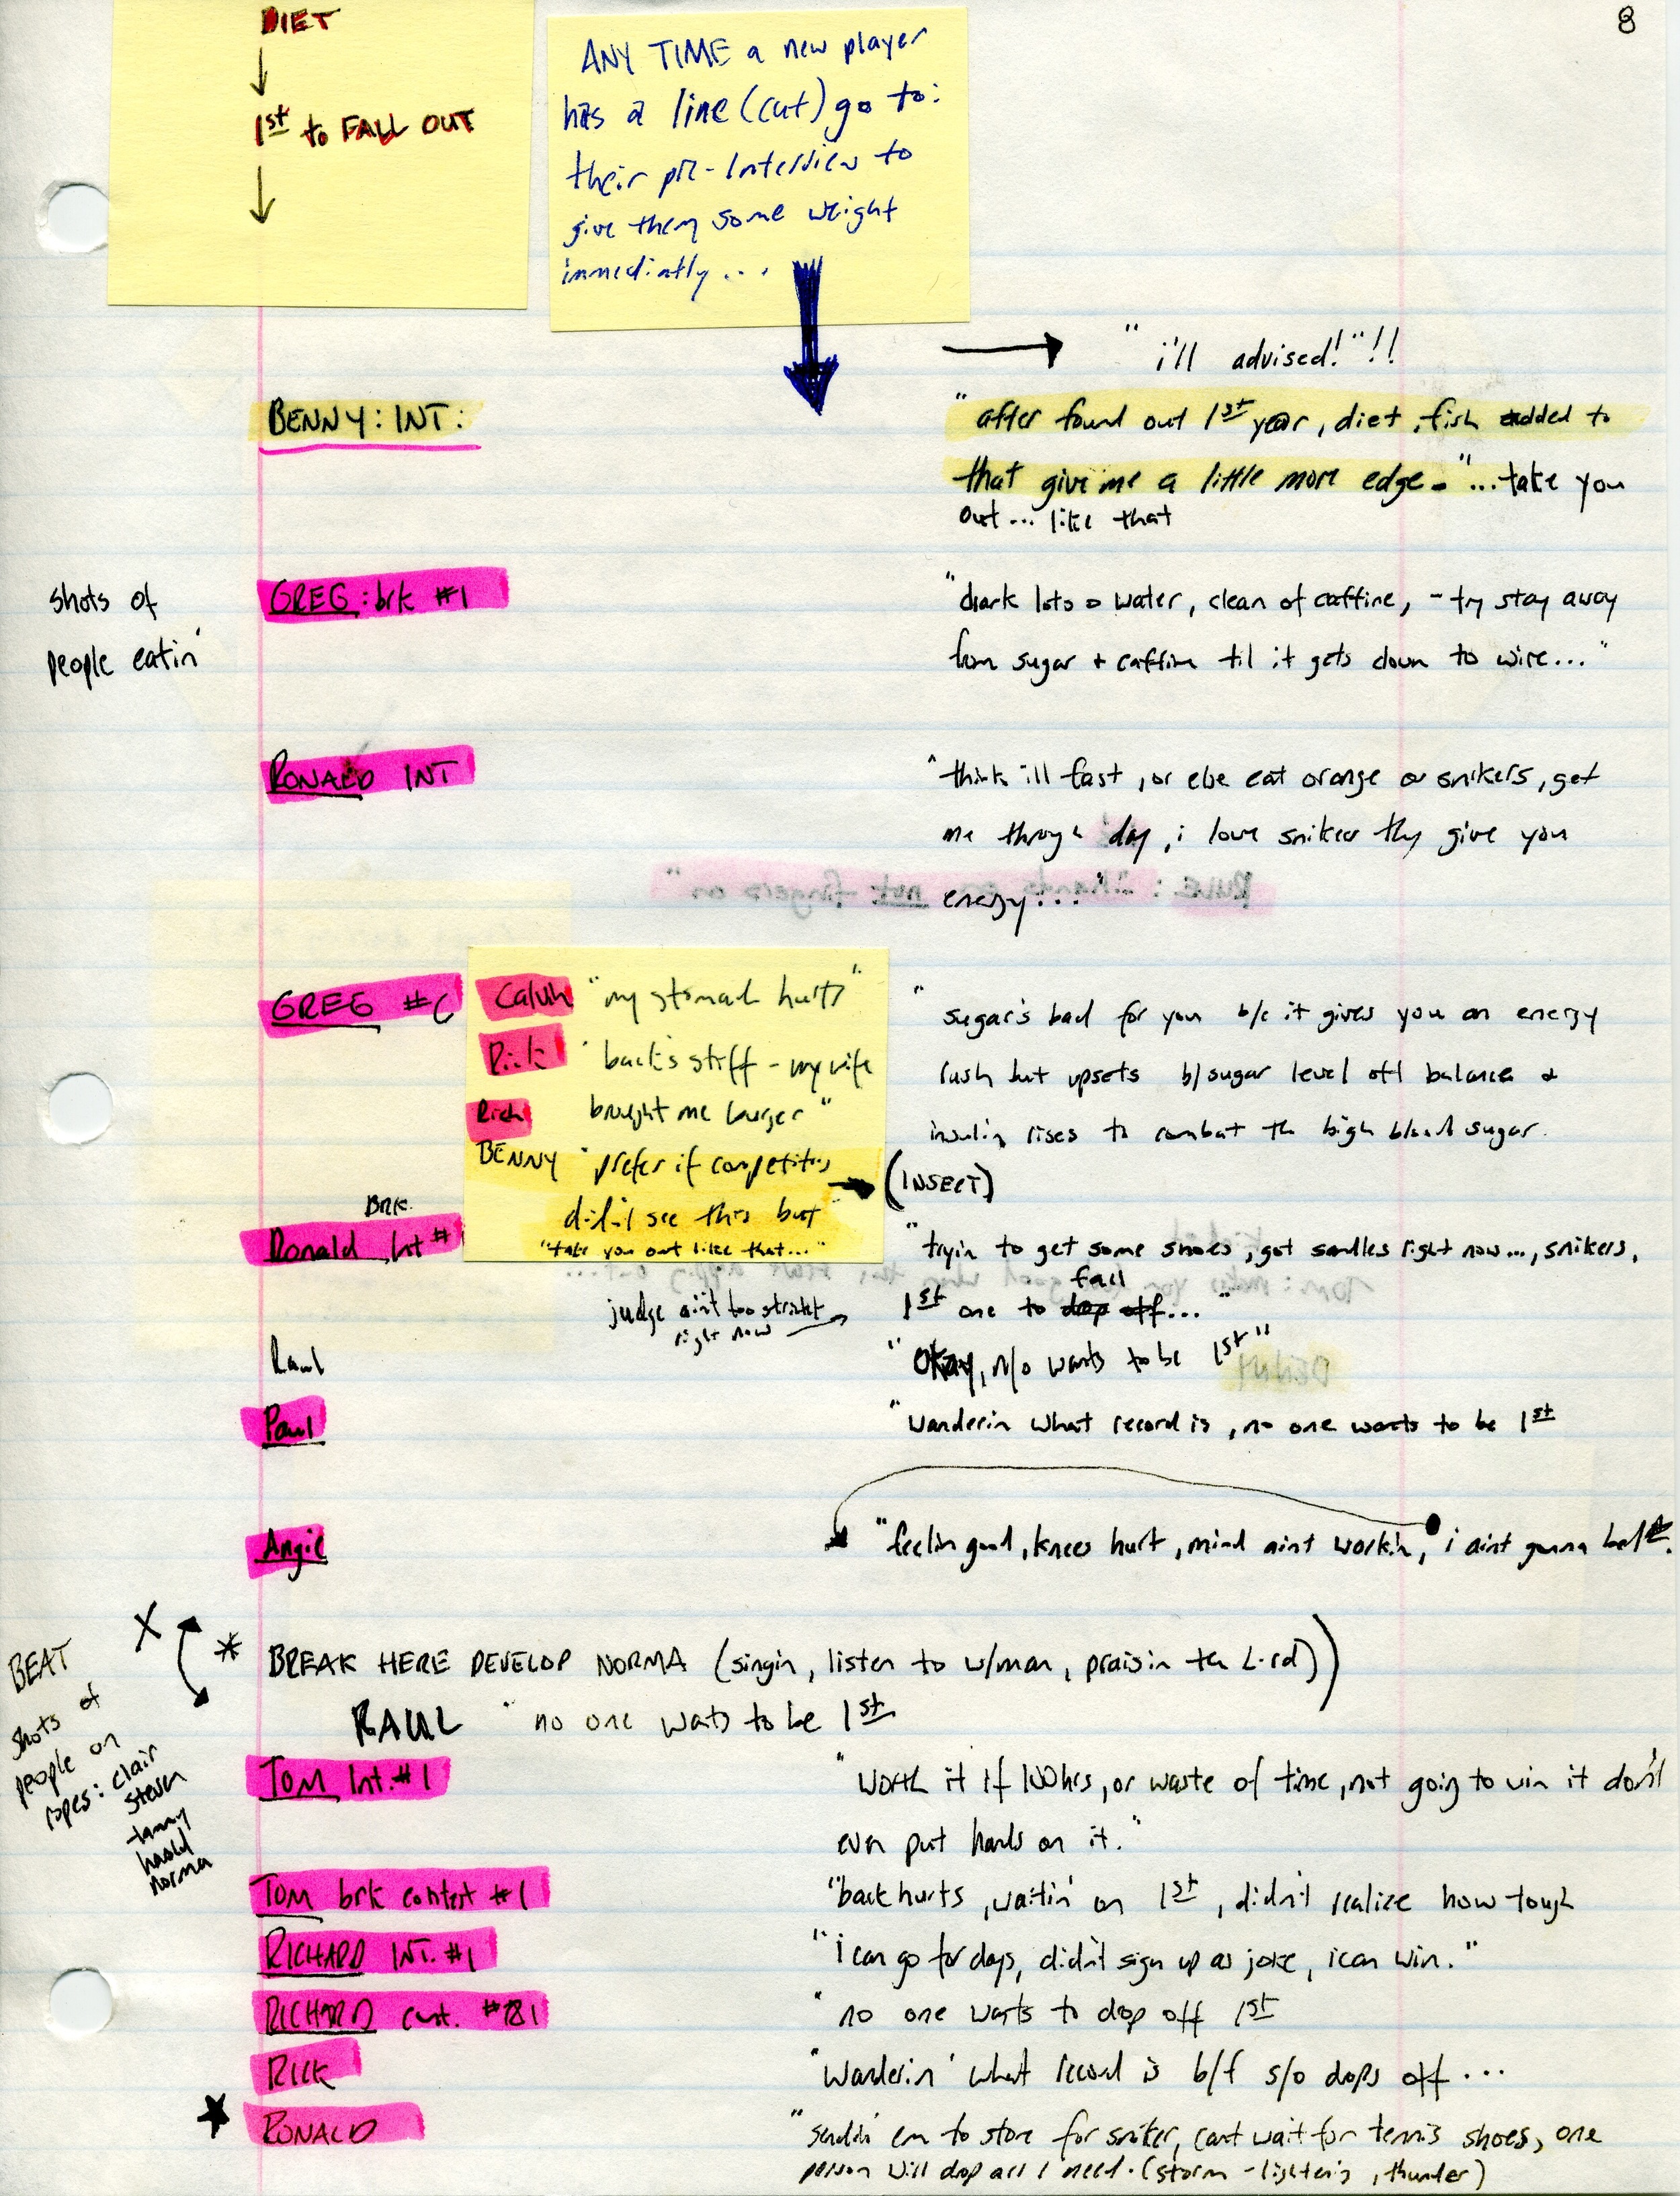 8
DIET
1st to FALL OUT
ANY TIME a new player
has a line (cut) go to:
their pre-Interview to
give them some weight
immediatly...
"i'll advised!"!!
BENNY: INT:
"after found out 1st year, diet, fish added to
that give me a little more edge-"...take you
out... like that
shots of
people eatin'
GREG: brk #1
"drark lots o water, clean of caffine, - try stay away
from sugar + caffine til it gets down to wire..."
RONALD INT
"think ill fast, or else eat orange or snikers, get
me through day, i love snikers thy give you
energy..."
GREG #6
Calvin "my stomach hurts"
Rick "back's stiff - my wife
Rich bought me burger"
BENNY "prefer if competitors
didn't see this but"
"take you out like that..."
"sugar's bad for you b/c it gives you an energy
rush but upsets b/sugar level off balance &
insulin rises to combat the high blood sugar.
(INSERT)
BRK.
Ronald Int #
"tryin to get some shoes, got sandles right now..., snikers,
fall
1st one to drop off..."
judge ain't too strickt
right now
Raul
"Okay, n/o wants to be 1st"
Paul
"wanderin what record is, no one wants to be 1st
Angie
"feelin good, knees hurt, mind aint workin, i aint gunna be 1st.
X
* BREAK HERE DEVELOP NORMA (singin, listen to w/man, praisin the Lord))
RAUL "no one wants to be 1st
BEAT
shots of
people on
ropes: clair
steven
tammy
harold
norma
TOM Int. #1
"worth it if 100hrs, or waste of time, not going to win it don't
even put hands on it."
TOM brk contest #1
"back hurts, waitin' on 1st, didn't realize how tough
RICHARD INT. #1
"i can go for days, didn't sign up as joke, i can win."
RICHARD cont. #1
"no one wants to drop off 1st
RICK
"Wanderin' what record is b/f s/o drops off...
RONALD
"sendin em to store for sniker, cant wait for tennis shoes, one
person will drop all I need. (storm - lightenis, thunder)